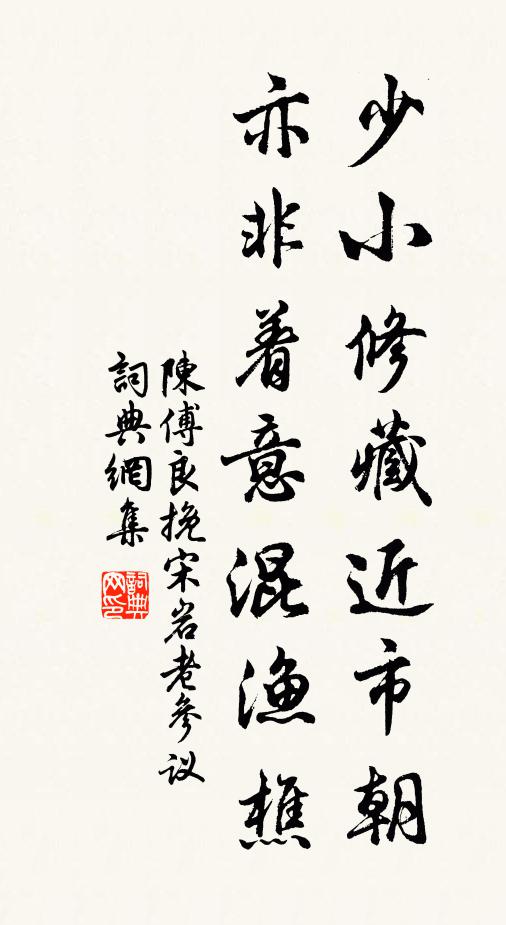 少小修藏近市朝
亦非着意混渔樵
陳傅良挽宋岩老參议
詞典網集
詞典网印